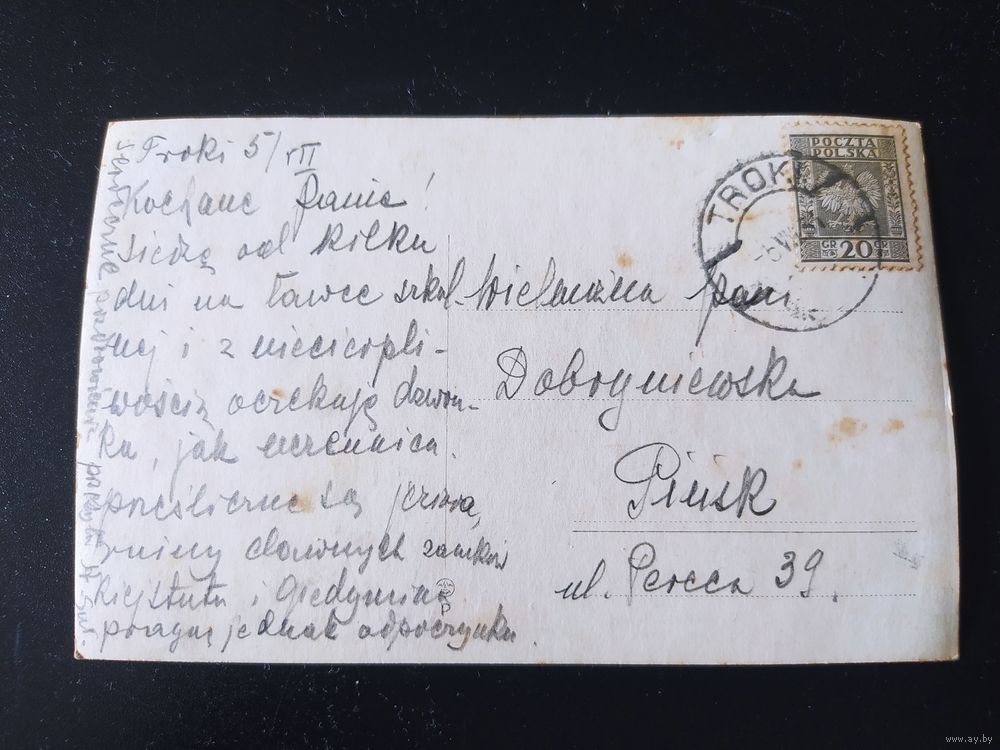 Troki 5/VII
Kochane Panie!
siedzę od kilku
dni na ławce szkol-
nej i z niecierpli-
wością oczekuję dzwon-
ka, jak uczennica.
prześliczne są jeziora,
ruiny dawnych zamków
Kiejstuta i Giedymina
pragnę jednak odpoczynku.
serdeczne pozdrowienia
Wielmożna Pani
Dobryniewska
Pińsk
ul. Pereca 39.
POCZTA
POLSKA
GR 20 GR
TROKI
www.ay.by